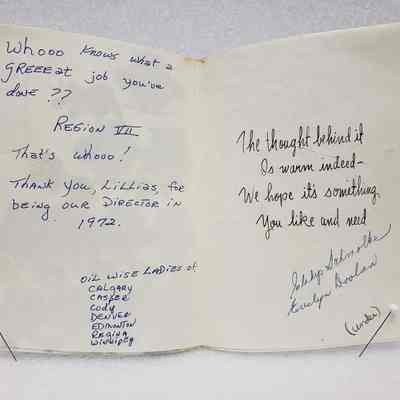 Whooo knows what a
GREEEat job you've
done ??
REGION VII
That's whooo!
THANK YOU, LILLIAS, for
being our DIRECTOR in
1972.
OIL WISE LADIES of
CALGARY
CASPER
Cody
DENVER
EDMONTON
REGINA
WINNIPEG
The thought behind it
Is warm indeed—
We hope it's something
You like and need
Evelyn Doolan
(under)